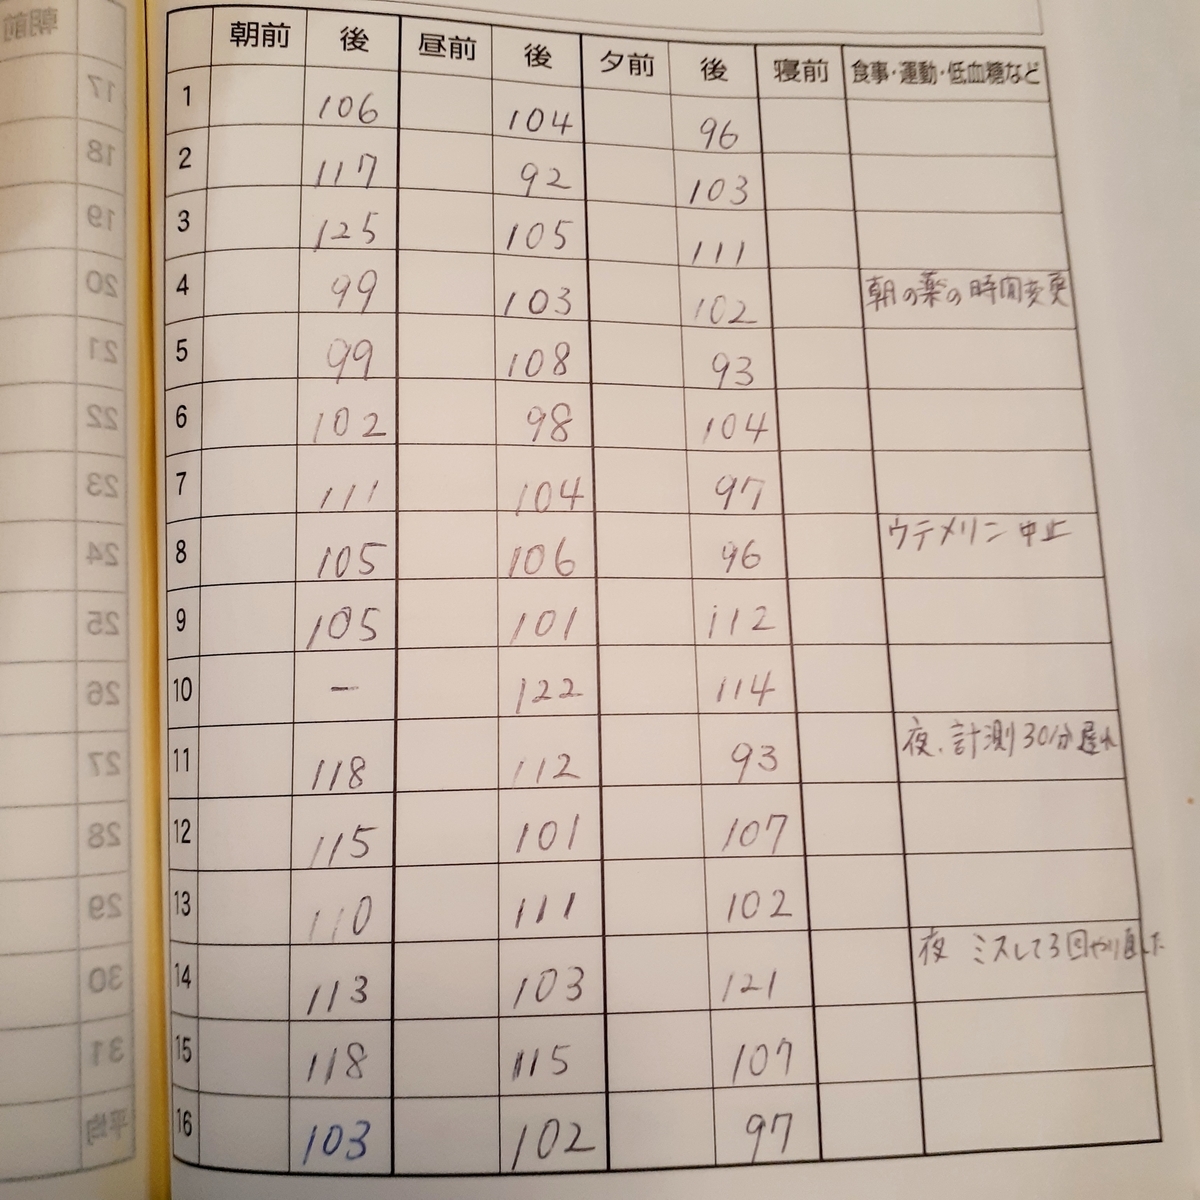 朝前 後 昼前 後 夕前 後 寝前 食事・運動・低血糖など
1 106 104 96
2 117 92 103
3 125 105 111
4 99 103 102 朝の薬の時間変更
5 99 108 93
6 102 98 104
7 111 104 97
8 105 106 96 ウテメリン中止
9 105 101 112
10 − 122 114
11 118 112 93 夜、計測30分遅れ
12 115 101 107
13 110 111 102
14 113 103 121 夜 ミスして3回やり直した
15 118 115 107
16 103 102 97
朝前
17
18
19
20
21
22
23
24
25
26
27
28
29
30
31
平均